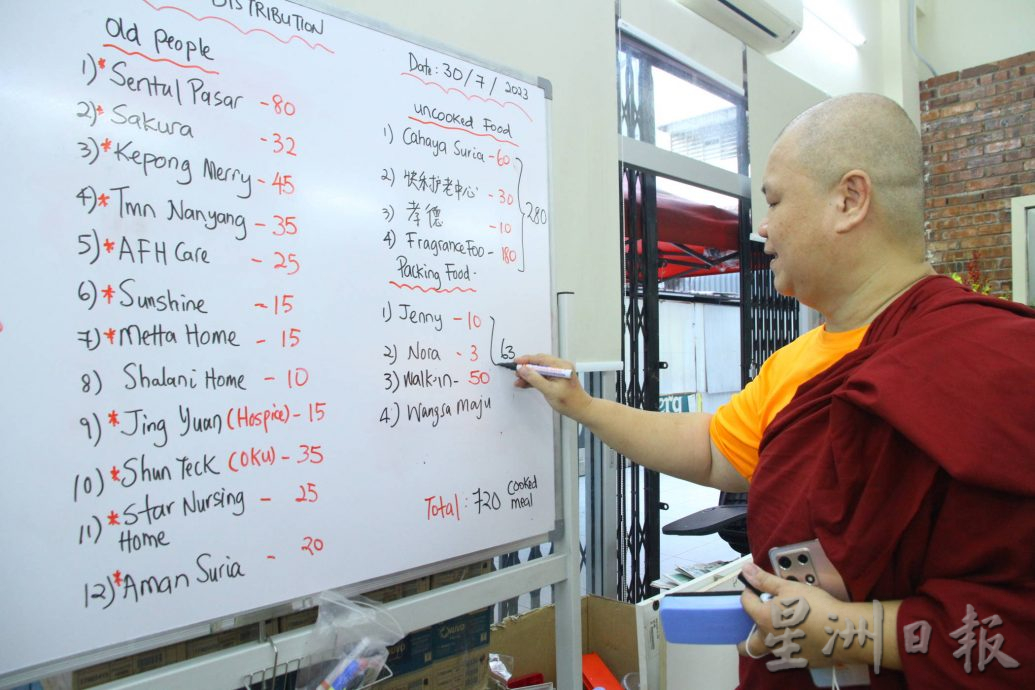 DISTRIBUTION
Old People
1) * Sentul Pasar - 80
2) * Sakura - 32
3) * Kepong Merry - 45
4) * Tmn Nanyang - 35
5) * AFH Care - 25
6) * Sunshine - 15
7) * Metta Home - 15
8) Shalani Home - 10
9) * Jing Yuan (Hospice) - 15
10) * Shun Teck (OKU) - 35
11) * Star Nursing - 25
Home
12) * Aman Suria - 20
Date: 30/7/2023
uncooked Food
1) Cahaya Suria - 60
2) 快乐护老中心 - 30
3) 孝德 - 10
4) Fragrance Foo - 180
280
Packing Food.
1) Jenny - 10
2) Nora - 3
3) Walk-in - 50
63
4) Wangsa Maju
Total: 720 cooked
meal
星洲日報